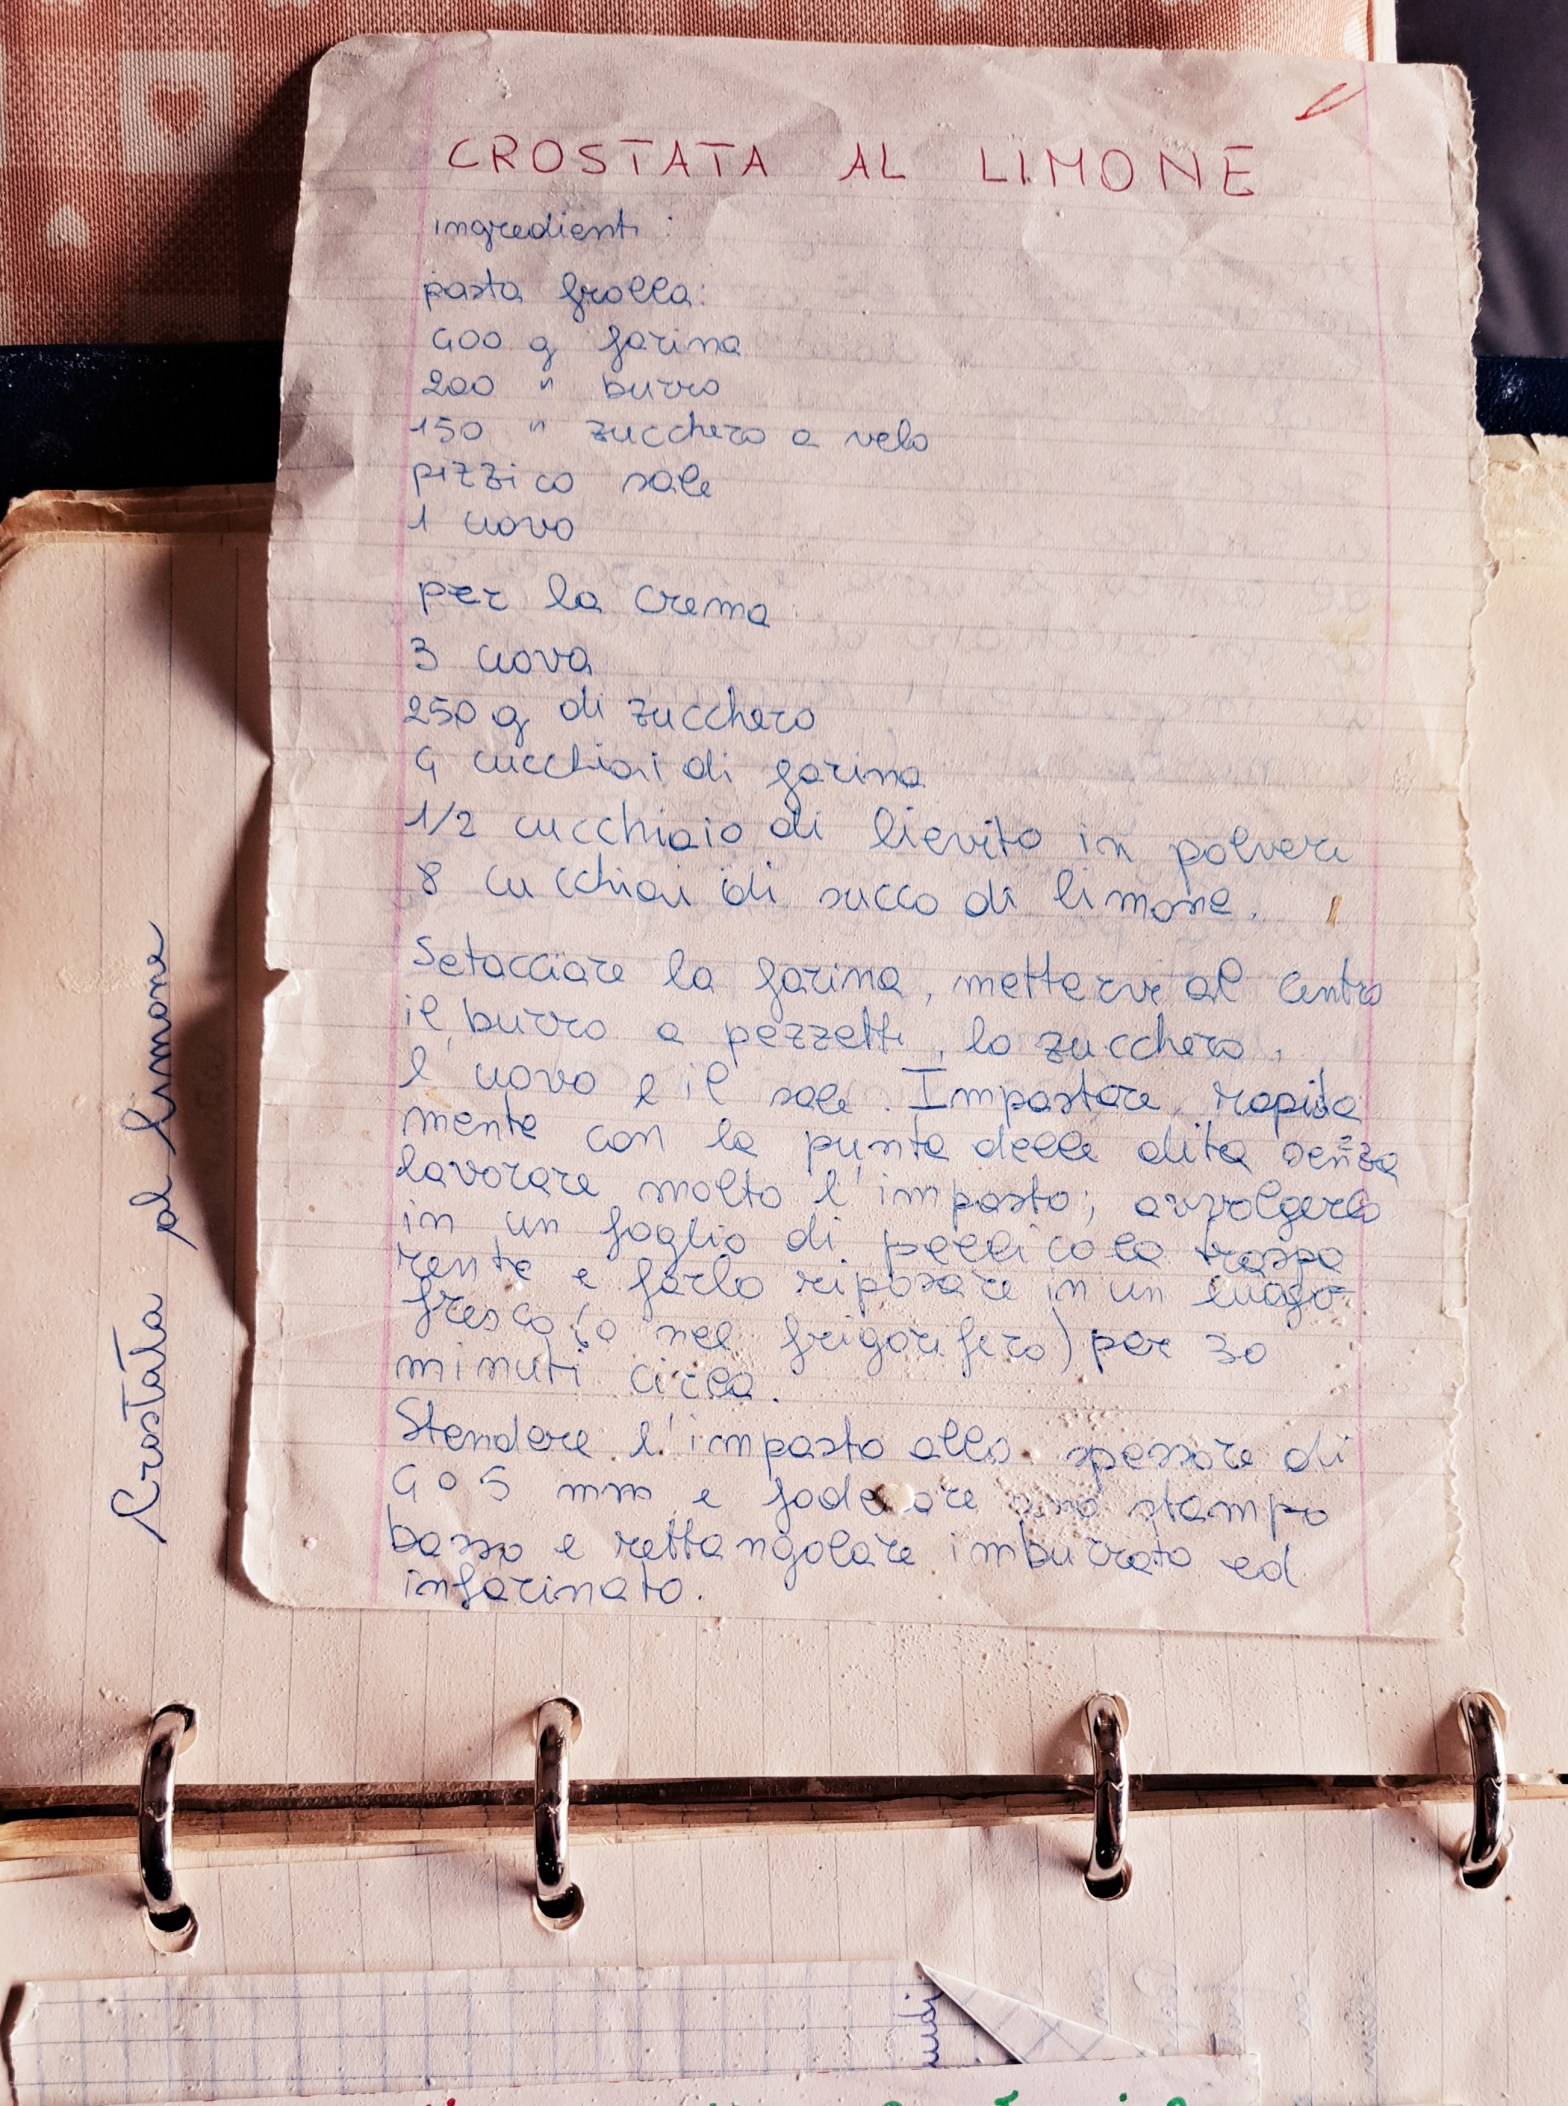 CROSTATA AL LIMONE
ingredienti:
pasta frolla:
400 g farina
200 " burro
150 " zucchero a velo
pizzico sale
1 uovo
per la crema:
3 uova
250 g di zucchero
4 cucchiai di farina
1/2 cucchiaio di lievito in polvere
8 cucchiai di succo di limone.
Setacciare la farina, mettervi al centro
il burro a pezzetti, lo zucchero,
l'uovo e il sale. Impastare rapida
mente con la punta delle dita senza
lavorare molto l'impasto; avvolgerlo
in un foglio di pellicola traspa
rente e farlo riposare in un luogo
fresco (o nel frigorifero) per 30
minuti circa.
Stendere l'impasto allo spessore di
4 o 5 mm e foderare uno stampo
basso e rettangolare imburrato ed
infarinato.
Crostata al limone